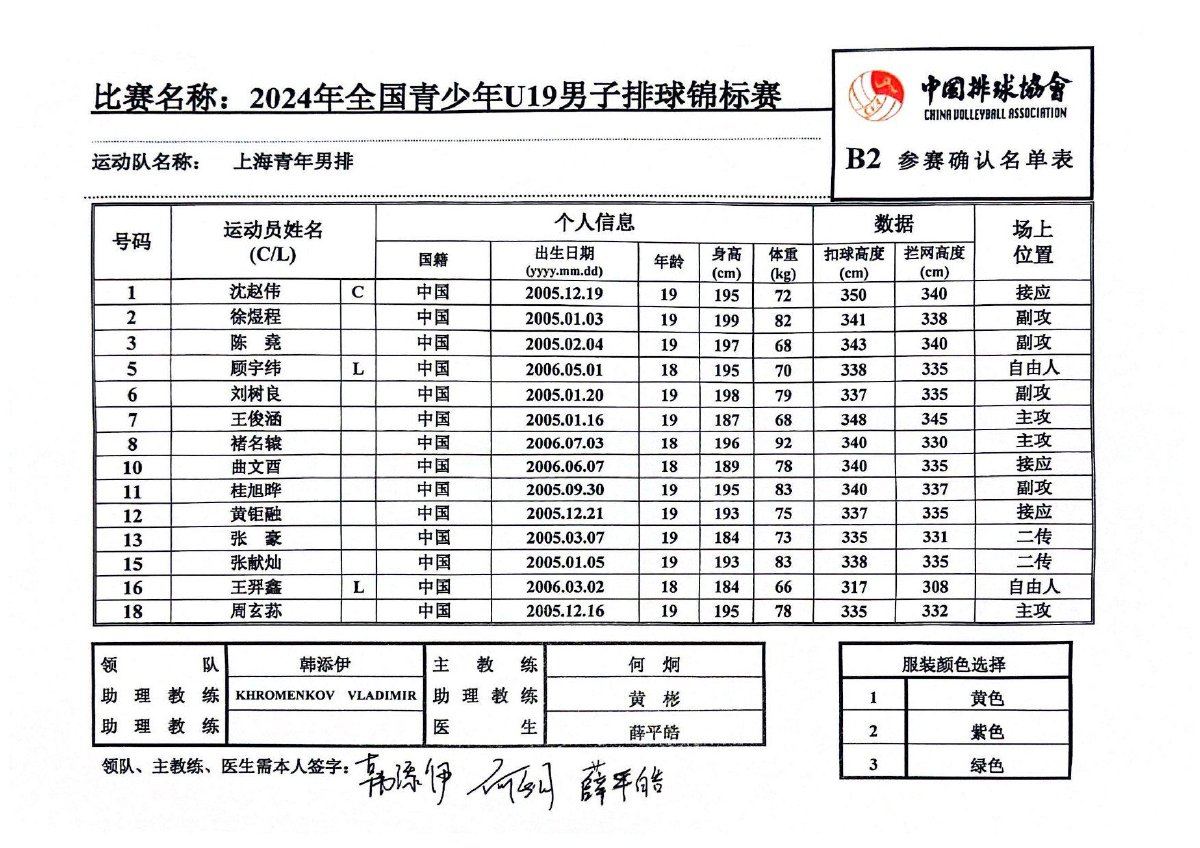 比赛名称：2024年全国青少年U19男子排球锦标赛
中国排球协會
CHINA VOLLEYBALL ASSOCIATION
B2 参赛确认名单表
运动队名称： 上海青年男排
号码 运动员姓名 (C/L) 个人信息 数据 场上位置
国籍 出生日期 (yyyy.mm.dd) 年龄 身高 (cm) 体重 (kg) 扣球高度 (cm) 拦网高度 (cm)
1 沈赵伟 C 中国 2005.12.19 19 195 72 350 340 接应
2 徐煜程 中国 2005.01.03 19 199 82 341 338 副攻
3 陈 堯 中国 2005.02.04 19 197 68 343 340 副攻
5 顾宇纬 L 中国 2006.05.01 18 195 70 338 335 自由人
6 刘树良 中国 2005.01.20 19 198 79 337 335 副攻
7 王俊涵 中国 2005.01.16 19 187 68 348 345 主攻
8 褚名辕 中国 2006.07.03 18 196 92 340 330 主攻
10 曲文酉 中国 2006.06.07 18 189 78 340 335 接应
11 桂旭晔 中国 2005.09.30 19 195 83 340 337 副攻
12 黄钜融 中国 2005.12.21 19 193 75 337 335 接应
13 张 豪 中国 2005.03.07 19 184 73 335 331 二传
15 张献灿 中国 2005.01.05 19 193 83 338 335 二传
16 王羿鑫 L 中国 2006.03.02 18 184 66 317 308 自由人
18 周玄荪 中国 2005.12.16 19 195 78 335 332 主攻
领队 韩添伊 主教练 何 炯
助理教练 KHROMENKOV VLADIMIR 助理教练 黄 彬
助理教练 医生 薛平皓
服装颜色选择
1 黄色
2 紫色
3 绿色
领队、主教练、医生需本人签字：韩添伊 何炯 薛平皓